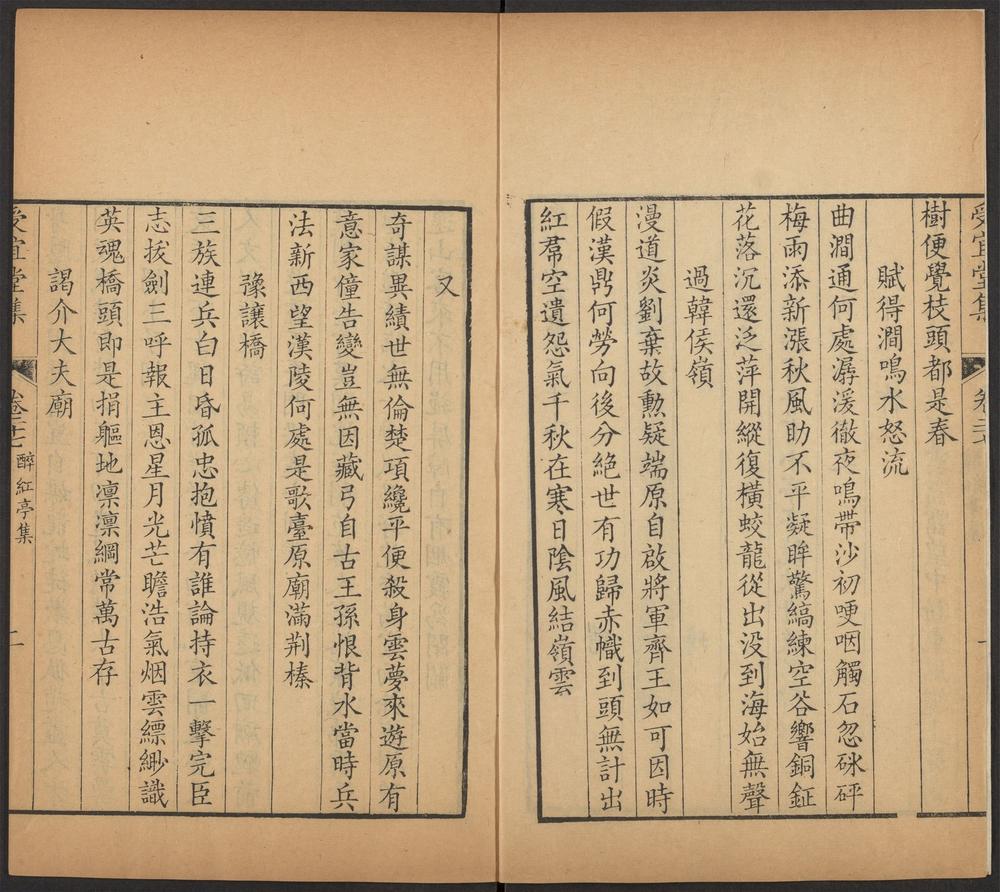 受宜堂集 卷三十七
樹便覺枝頭都是春
賦得澗鳴水怒流
曲澗通何處潺湲徹夜鳴帶沙初哽咽觸石忽砯砰
梅雨添新漲秋風助不平凝眸驚縞練空谷響銅鉦
花落沉還泛萍開縱復橫蛟龍從出没到海始無聲
過韓侯嶺
漫道炎劉棄故勲疑端原自啟將軍齊王如可因時
假漢鼎何勞向後分絕世有功歸赤幟到頭無計出
紅帬空遺怨氣千秋在寒日陰風結嶺雲
又
奇謀異績世無倫楚項纔平便殺身雲夢來遊原有
意家僮告變豈無因藏弓自古王孫恨背水當時兵
法新西望漢陵何處是歌臺原廟滿荆榛
豫讓橋
三族連兵白日昏孤忠抱憤有誰論持衣一擊完臣
志拔劍三呼報主恩星月光芒瞻浩氣烟雲縹緲識
英魂橋頭即是捐軀地凛凛綱常萬古存
謁介大夫廟
受宜堂集 卷三十七 醉紅亭集 二